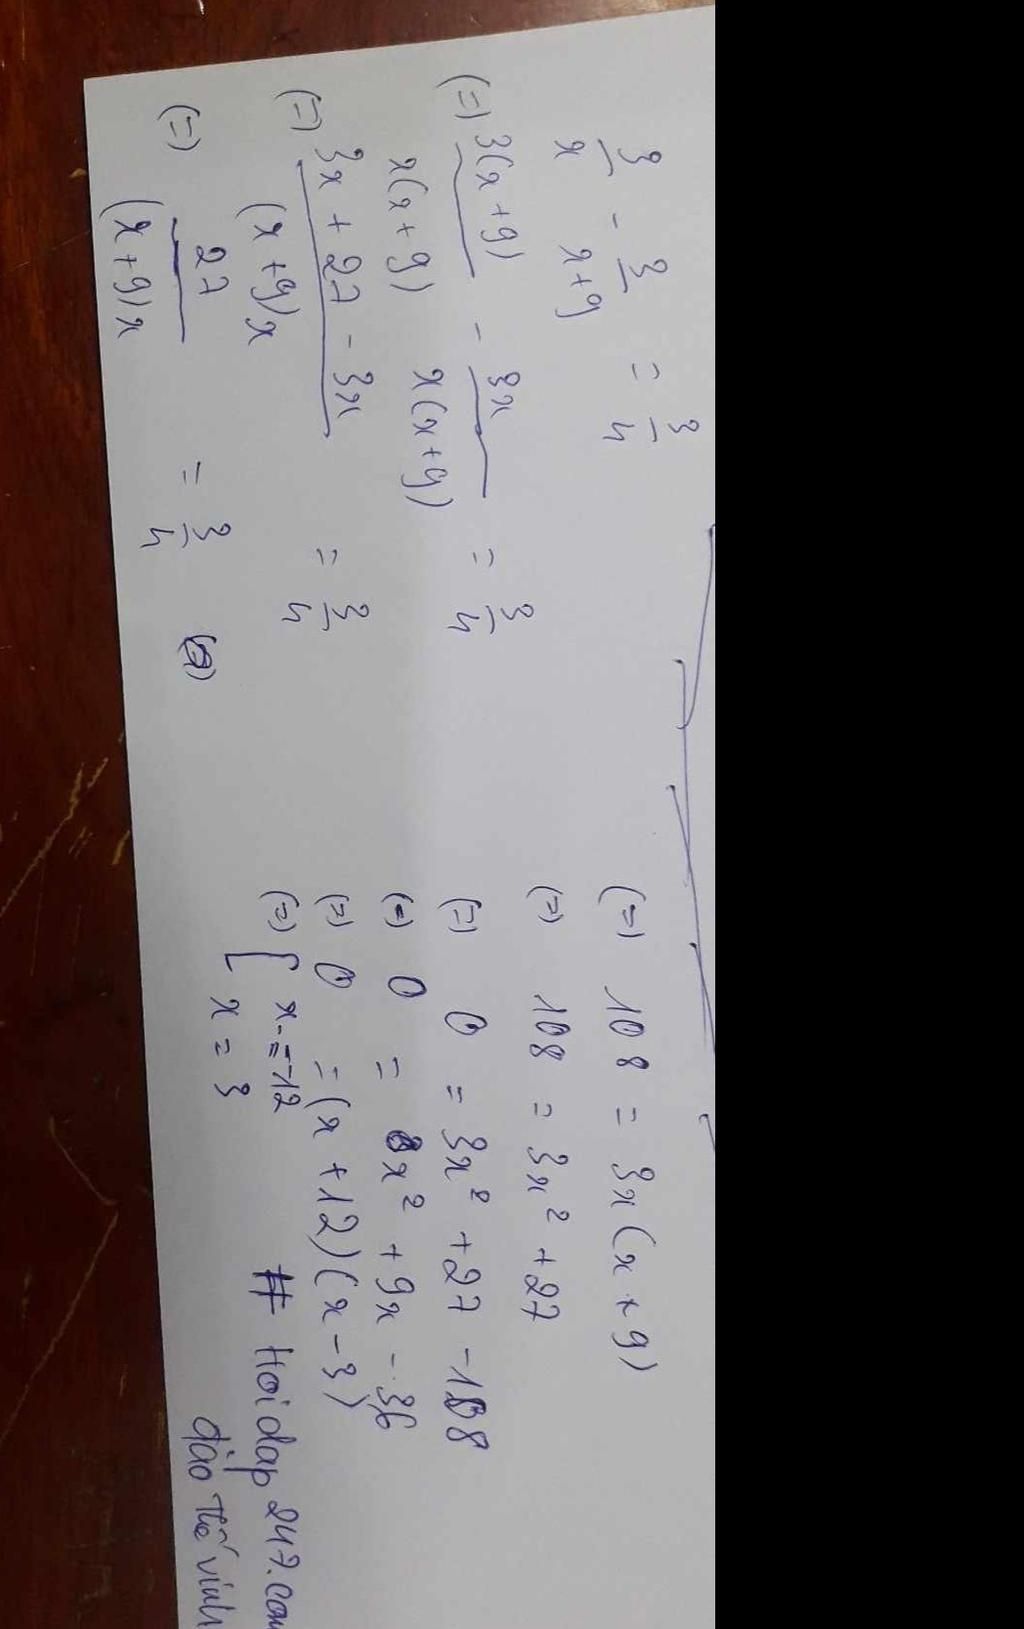 3/x - 3/x+9 = 3/4
(=) 3(x+9)/x(x+9) - 3x/x(x+9) = 3/4
(=) 3x + 27 - 3x/(x+9)x = 3/4
(=) 27/(x+9)x = 3/4
(=) 108 = 3x(x+9)
(=) 108 = 3x² + 27
(=) 0 = 3x² + 27 - 108
(=) 0 = x² + 9x - 36
(=) 0 = (x + 12)(x - 3)
(=) [ x = -12
x = 3
# Hoidap 247.com
đào thế vinh